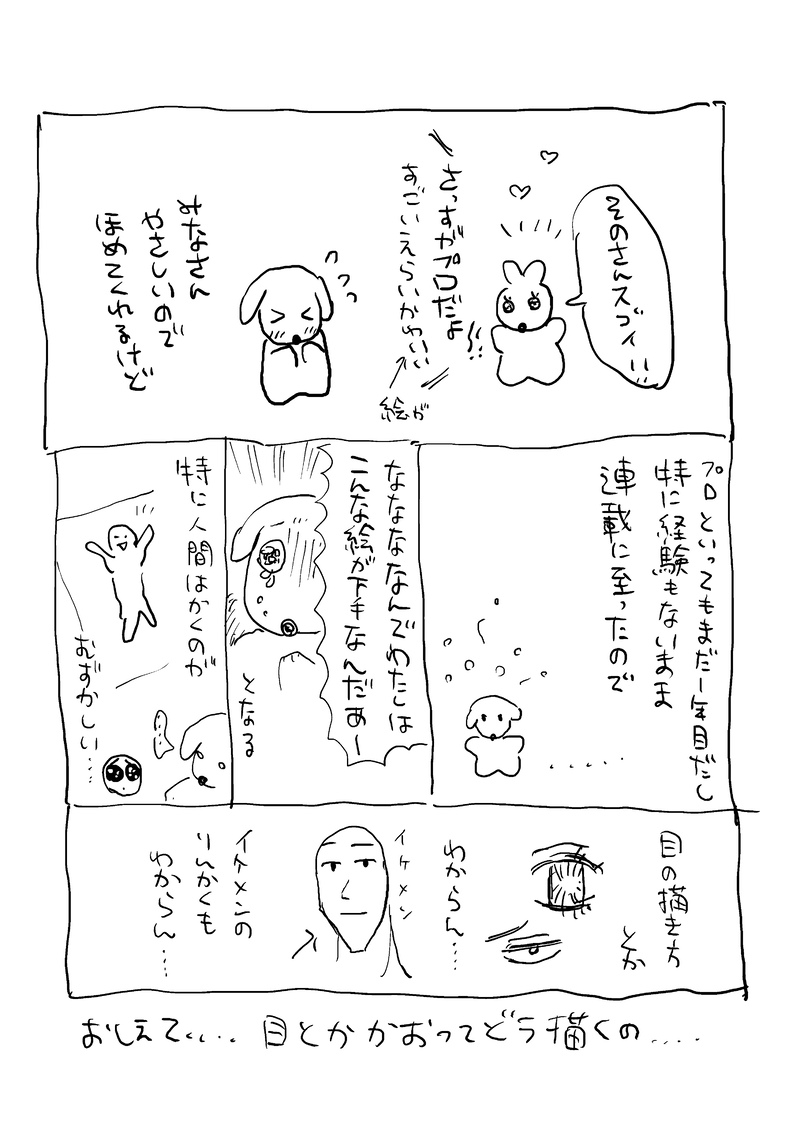 そのさんスゴイ!!
さっすがプロだよ
すごいえらいかわいい
絵が
みなさん
やさしいので
ほめてくれるけど
プロといってもまだ1年目だし
特に経験もないまま
連載に至ったので
......
なななななんでわたしは
こんな絵が下手なんだあー
となる
特に人間はかくのが
むずかしい…
目の描き方
とか
わからん…
イケメン
イケメンの
りんかくも
わからん…
おしえて.... 目とかかおってどう描くの....